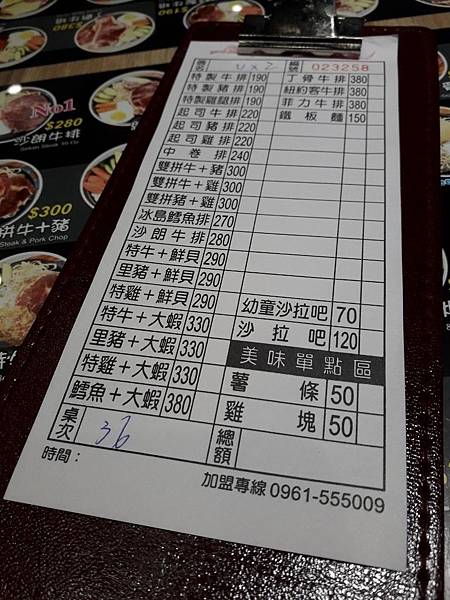 023258
特製牛排 190 丁骨牛排 380
特製豬排 190 紐約客牛排 380
特製雞腿排 190 菲力牛排 380
起司牛排 220 鐵板麵 150
起司豬排 220
起司雞排 220
中卷排 240
雙拼牛+豬 300
雙拼牛+雞 300
雙拼豬+雞 300
冰島鱈魚排 270
沙朗牛排 280
特牛+鮮貝 290
里豬+鮮貝 290
特雞+鮮貝 290 幼童沙拉吧 70
特牛+大蝦 330 沙拉吧 120
里豬+大蝦 330 美味單點區
特雞+大蝦 330 薯條 50
鱈魚+大蝦 380 雞塊 50
桌次 36 總額
時間: 加盟專線 0961-555009
No1
$280
沙朗牛排
$300
拼牛+豬
Steak & Pork Chop